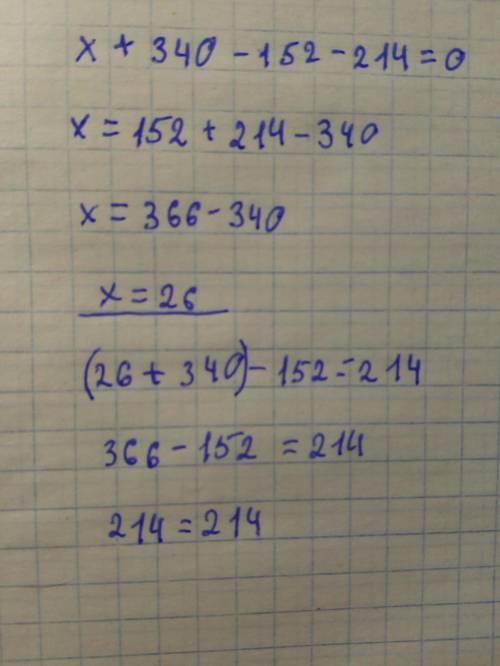 x + 340 - 152 - 214 = 0
x = 152 + 214 - 340
x = 366 - 340
x = 26
(26 + 340) - 152 = 214
366 - 152 = 214
214 = 214